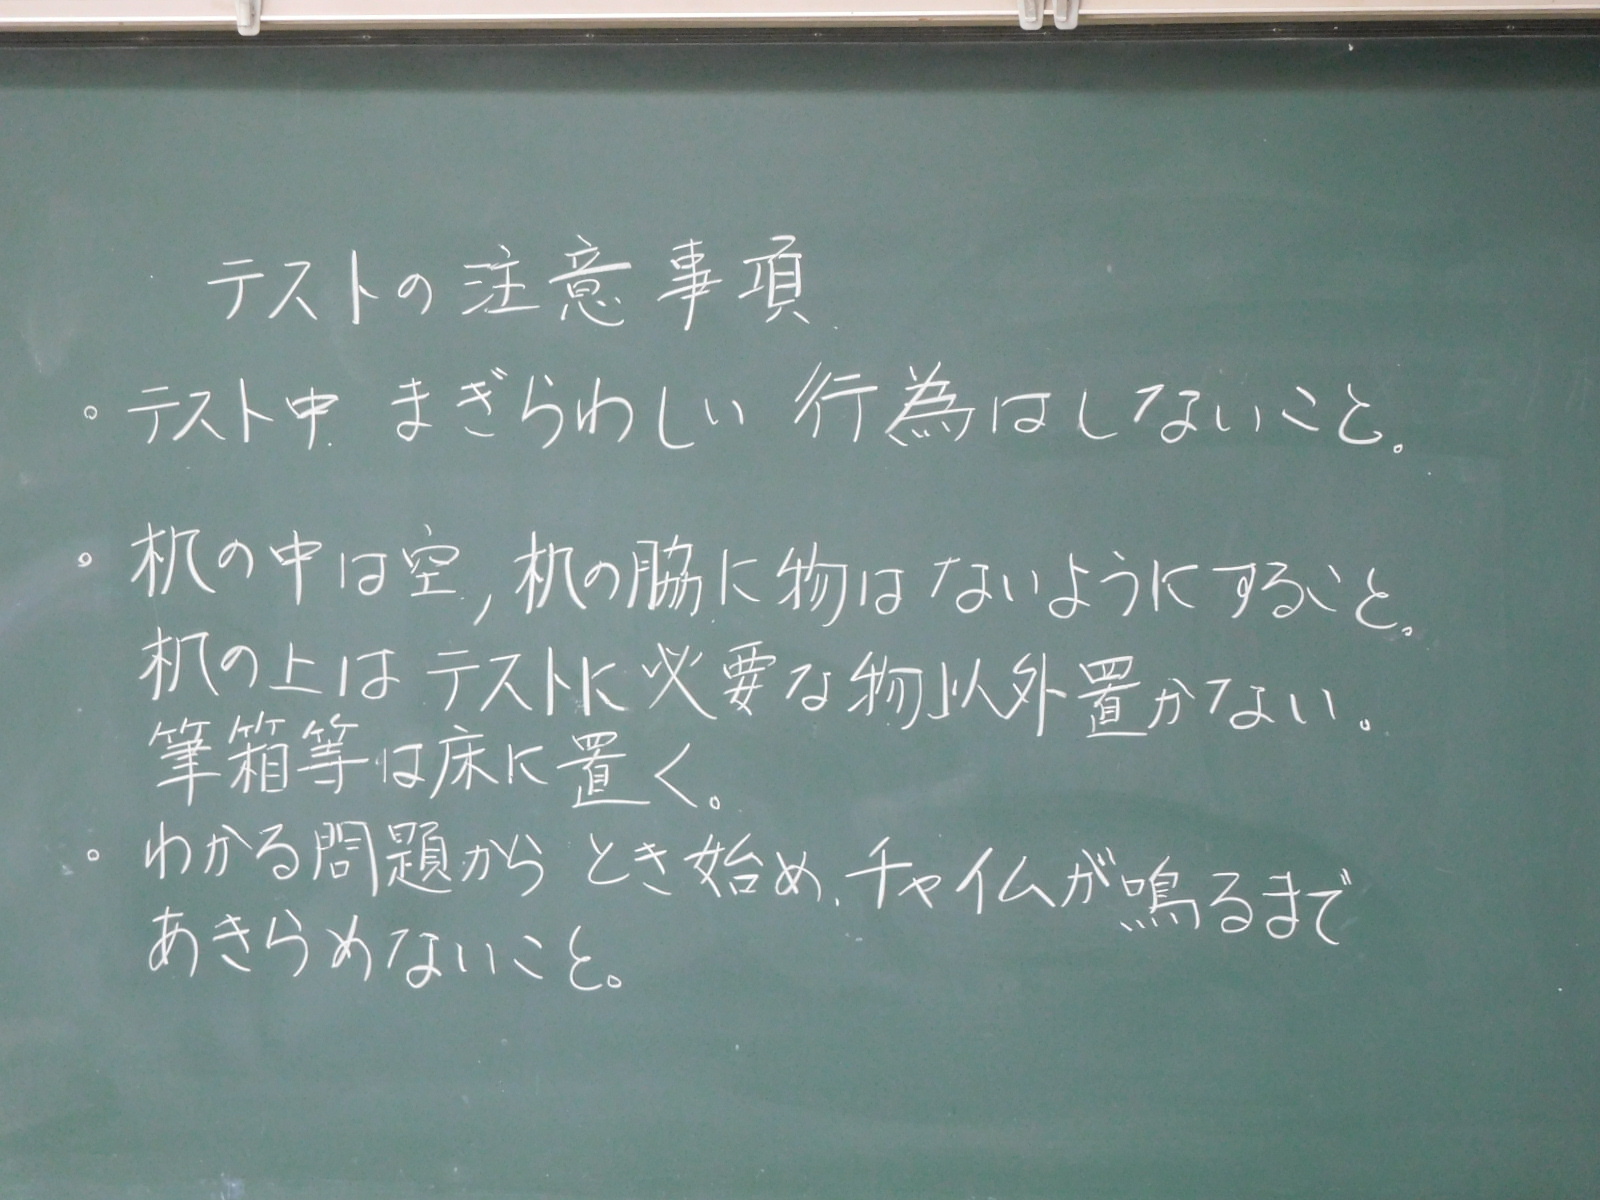 テストの注意事項
。テスト中 まぎらわしい 行為はしないこと。
。机の中は空,机の脇に物は ないようにすること。
机の上は テストに必要な物以外置かない。
筆箱等は床に置く。
。わかる問題から とき始め、チャイムが鳴るまで
あきらめないこと。